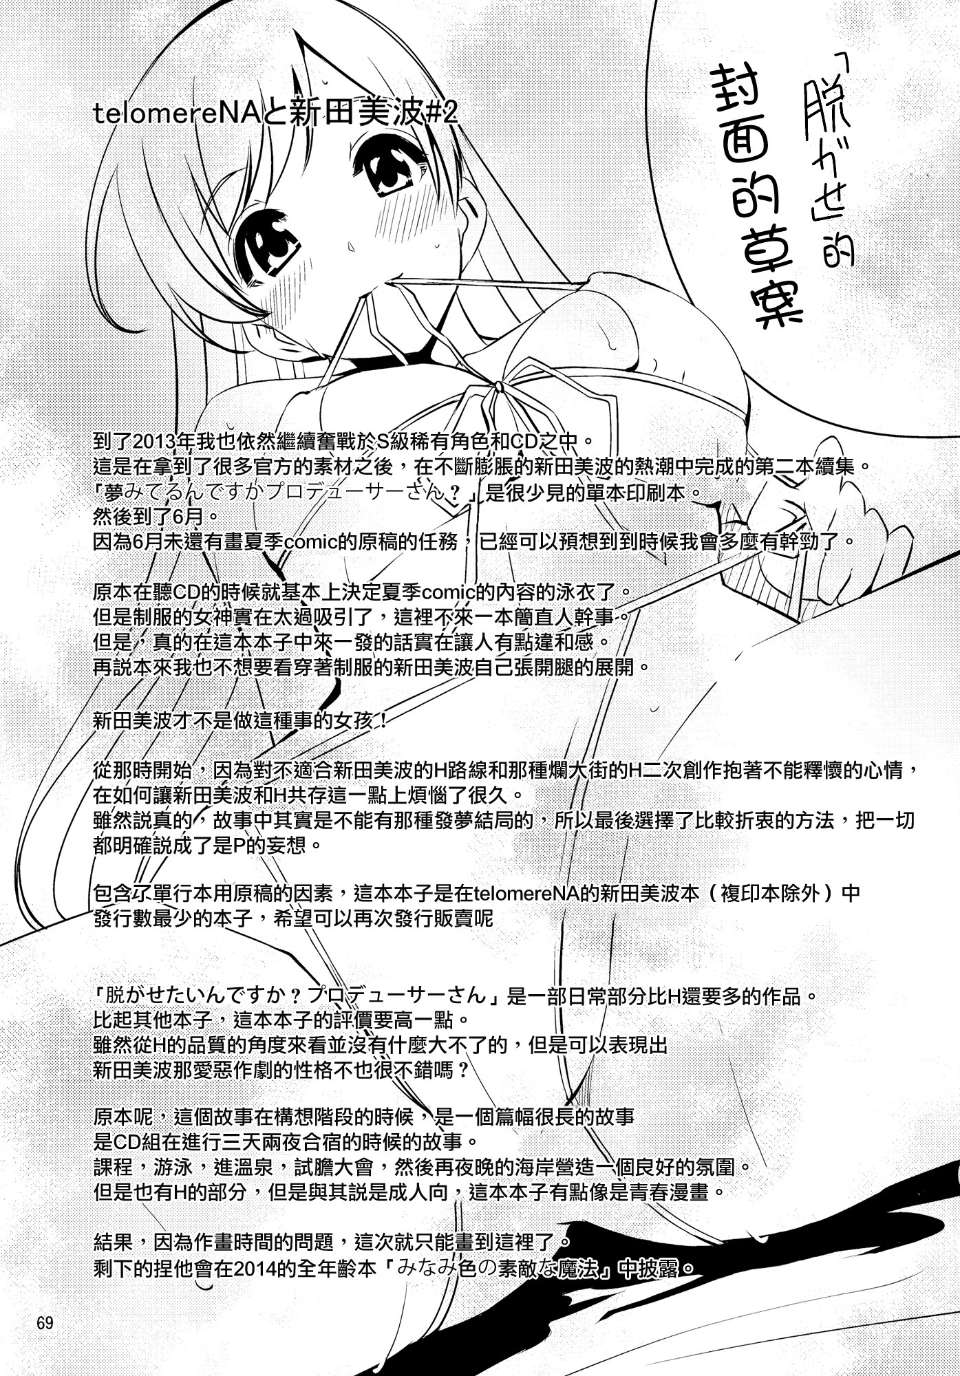 telomereNAと新田美波#2
「脱がせ」的
封面的草案
到了2013年我也依然繼續奮戰於S級稀有角色和CD之中。
這是在拿到了很多官方的素材之後，在不斷膨脹的新田美波的熱潮中完成的第二本續集。
「夢みてるんですかプロデューサーさん？」是很少見的單本印刷本。
然後到了6月。
因為6月未還有畫夏季comic的原稿的任務，已經可以預想到到時候我會多麼有幹勁了。
原本在聽CD的時候就基本上決定夏季comic的內容的泳衣了。
但是制服的女神實在太過吸引了，這裡不來一本簡直人幹事。
但是，真的在這本本子中來一發的話實在讓人有點違和感。
再説本來我也不想要看穿著制服的新田美波自己張開腿的展開。
新田美波才不是做這種事的女孩！
從那時開始，因為對不適合新田美波的H路線和那種爛大街的H二次創作抱著不能釋懷的心情，
在如何讓新田美波和H共存這一點上煩惱了很久。
雖然説真的，故事中其實是不能有那種發夢結局的，所以最後選擇了比較折衷的方法，把一切
都明確説成了是P的妄想。
包含了單行本用原稿的因素，這本本子是在telomereNA的新田美波本（複印本除外）中
發行數最少的本子，希望可以再次發行販賣呢
「脱がせたいんですか？プロデューサーさん」是一部日常部分比H還要多的作品。
比起其他本子，這本本子的評價要高一點。
雖然從H的品質的角度來看並沒有什麼大不了的，但是可以表現出
新田美波那愛惡作劇的性格不也很不錯嗎？
原本呢，這個故事在構想階段的時候，是一個篇幅很長的故事
是CD組在進行三天兩夜合宿的時候的故事。
課程，游泳，進溫泉，試膽大會，然後再夜晚的海岸營造一個良好的氛圍。
但是也有H的部分，但是與其説是成人向，這本本子有點像是青春漫畫。
結果，因為作畫時間的問題，這次就只能畫到這裡了。
剩下的捏他會在2014的全年齡本「みなみ色の素敵な魔法」中披露。
69